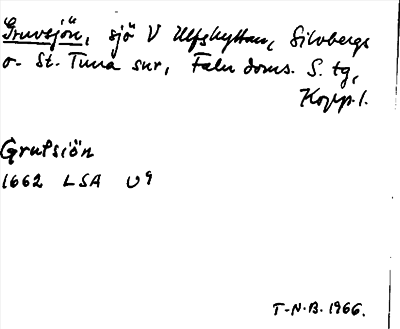 Gruvsjön, sjö V Ulfshyttan, Silvbergs
o. St. Tuna snr, Falu doms. S. tg,
Kopp. l.
Grufsiön
1662 LSA U9
T-N.B. 1966.